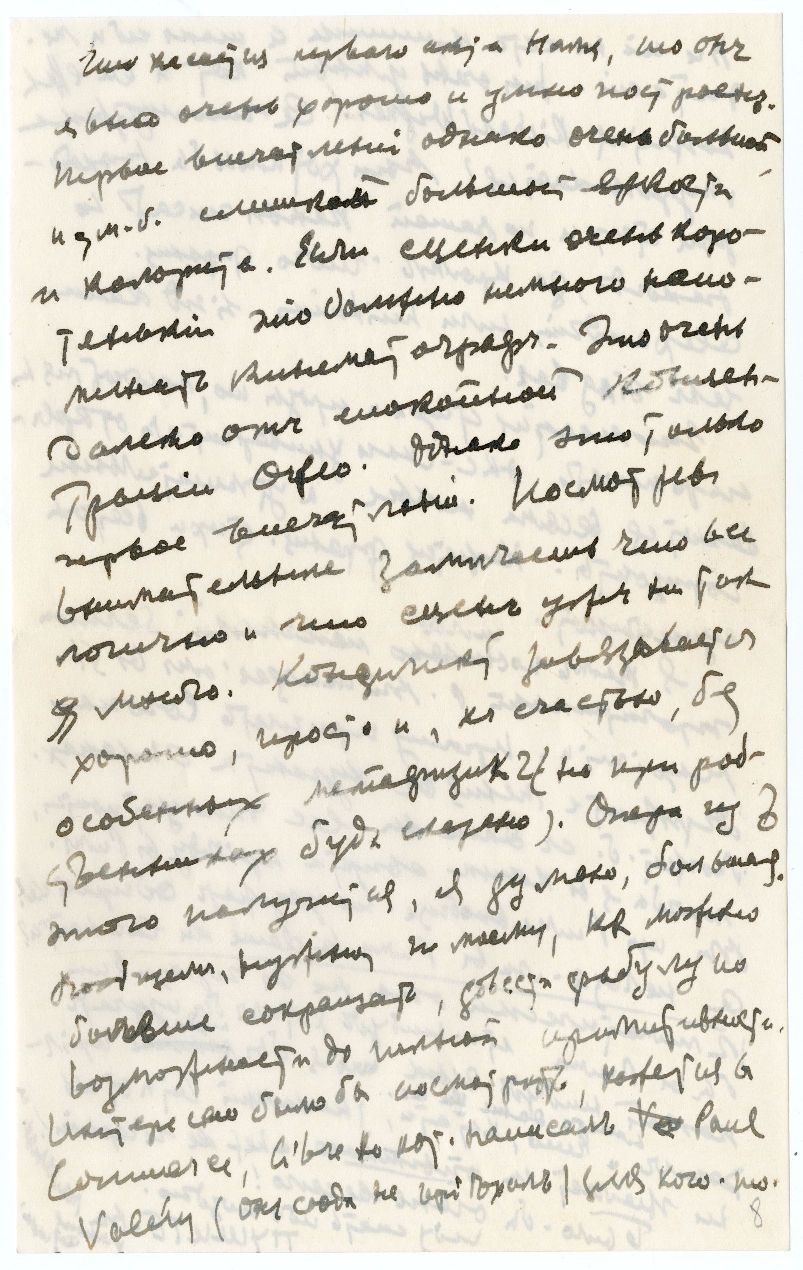 Что касается перваго акта Нала, то онъ
явно очень хорошо и умно построенъ.
Первое впечатленiе однако очень большой,
и м.б. слишкомъ большой яркости
и колорита. Если сценки очень коро-
тенькiя это должно немного напо-
минать кинематографъ. Это очень
далеко отъ спокойной
Orfeo. Однако это только
первое впечатленiе. Посмотрев
внимательнее замечаешь что все
логично и что сценъ ужъ не так
много. Конфликт завязывается
хорошо, просто и, къ счастью, без
особенных метафизик (но при род-
ственниках буде сказано). Опера из
этого получится, я думаю, большая.
Вообщем, нужно по моему, как можно
больше сокращать, довести фабулу по
возможности до полной примитивности.
Интересно было бы посмотреть, кажется в
Commerce, написалъ Paul
Valéry (онъ сюда не прiехалъ) для кого-то.
8